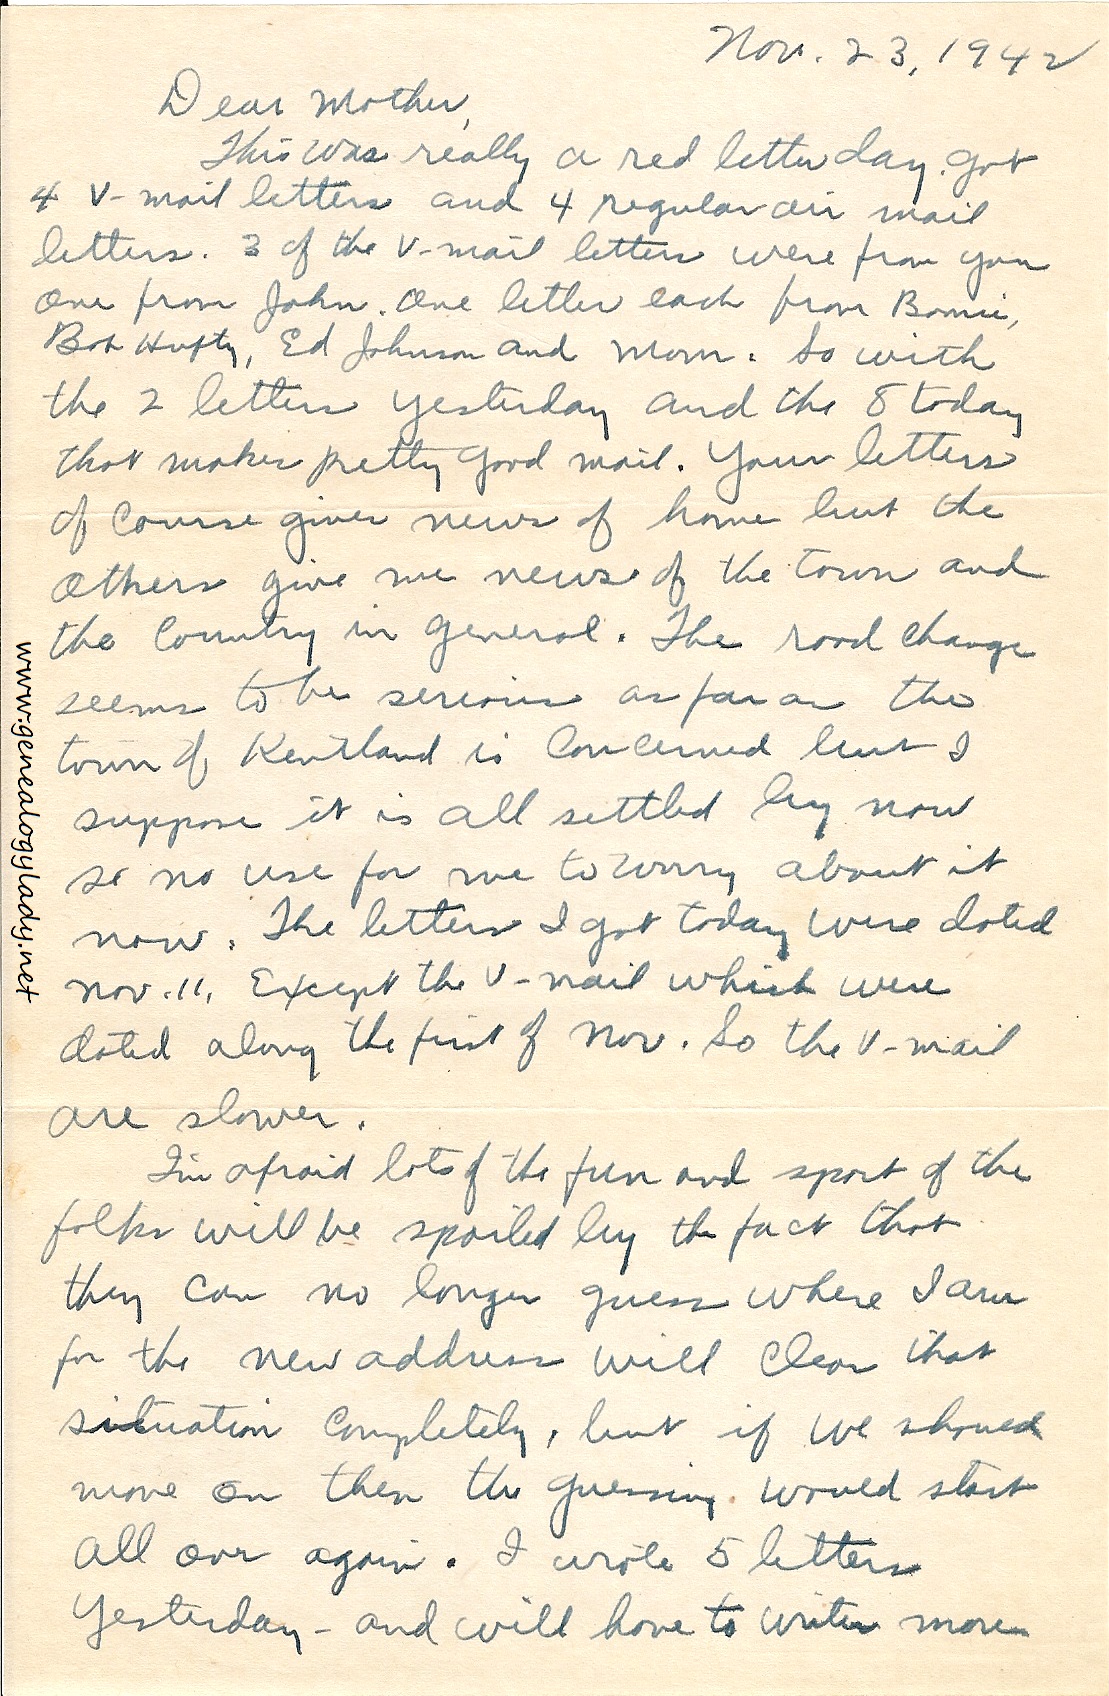 Nov. 23, 1942
Dear Mother,
This was really a red letter day. Got
4 V-mail letters and 4 regular air mail
letters. 3 of the V-mail letters were from you
one from John. One letter each from Bonnie,
Bob Hufty, Ed Johnson and Mom. So with
the 2 letters yesterday and the 8 today
that makes pretty good mail. Your letters
of course gives news of home but the
others give me news of the town and
the Country in general. The road change
seems to be serious as far as the
town of Kentland is concerned but I
suppose it is all settled by now
so no use for me to worry about it
now. The letters I got today were dated
Nov. 11, Except the V-mail which were
dated along the first of Nov. So the V-mail
are slower.
I'm afraid lots of the fun and sport of the
folks will be spoiled by the fact that
they can no longer guess where I am
for the new address will clear that
situation completely, but if we should
move on then the guessing would start
all over again. I wrote 5 letters
yesterday - and will have to write more
www.genealogylady.net